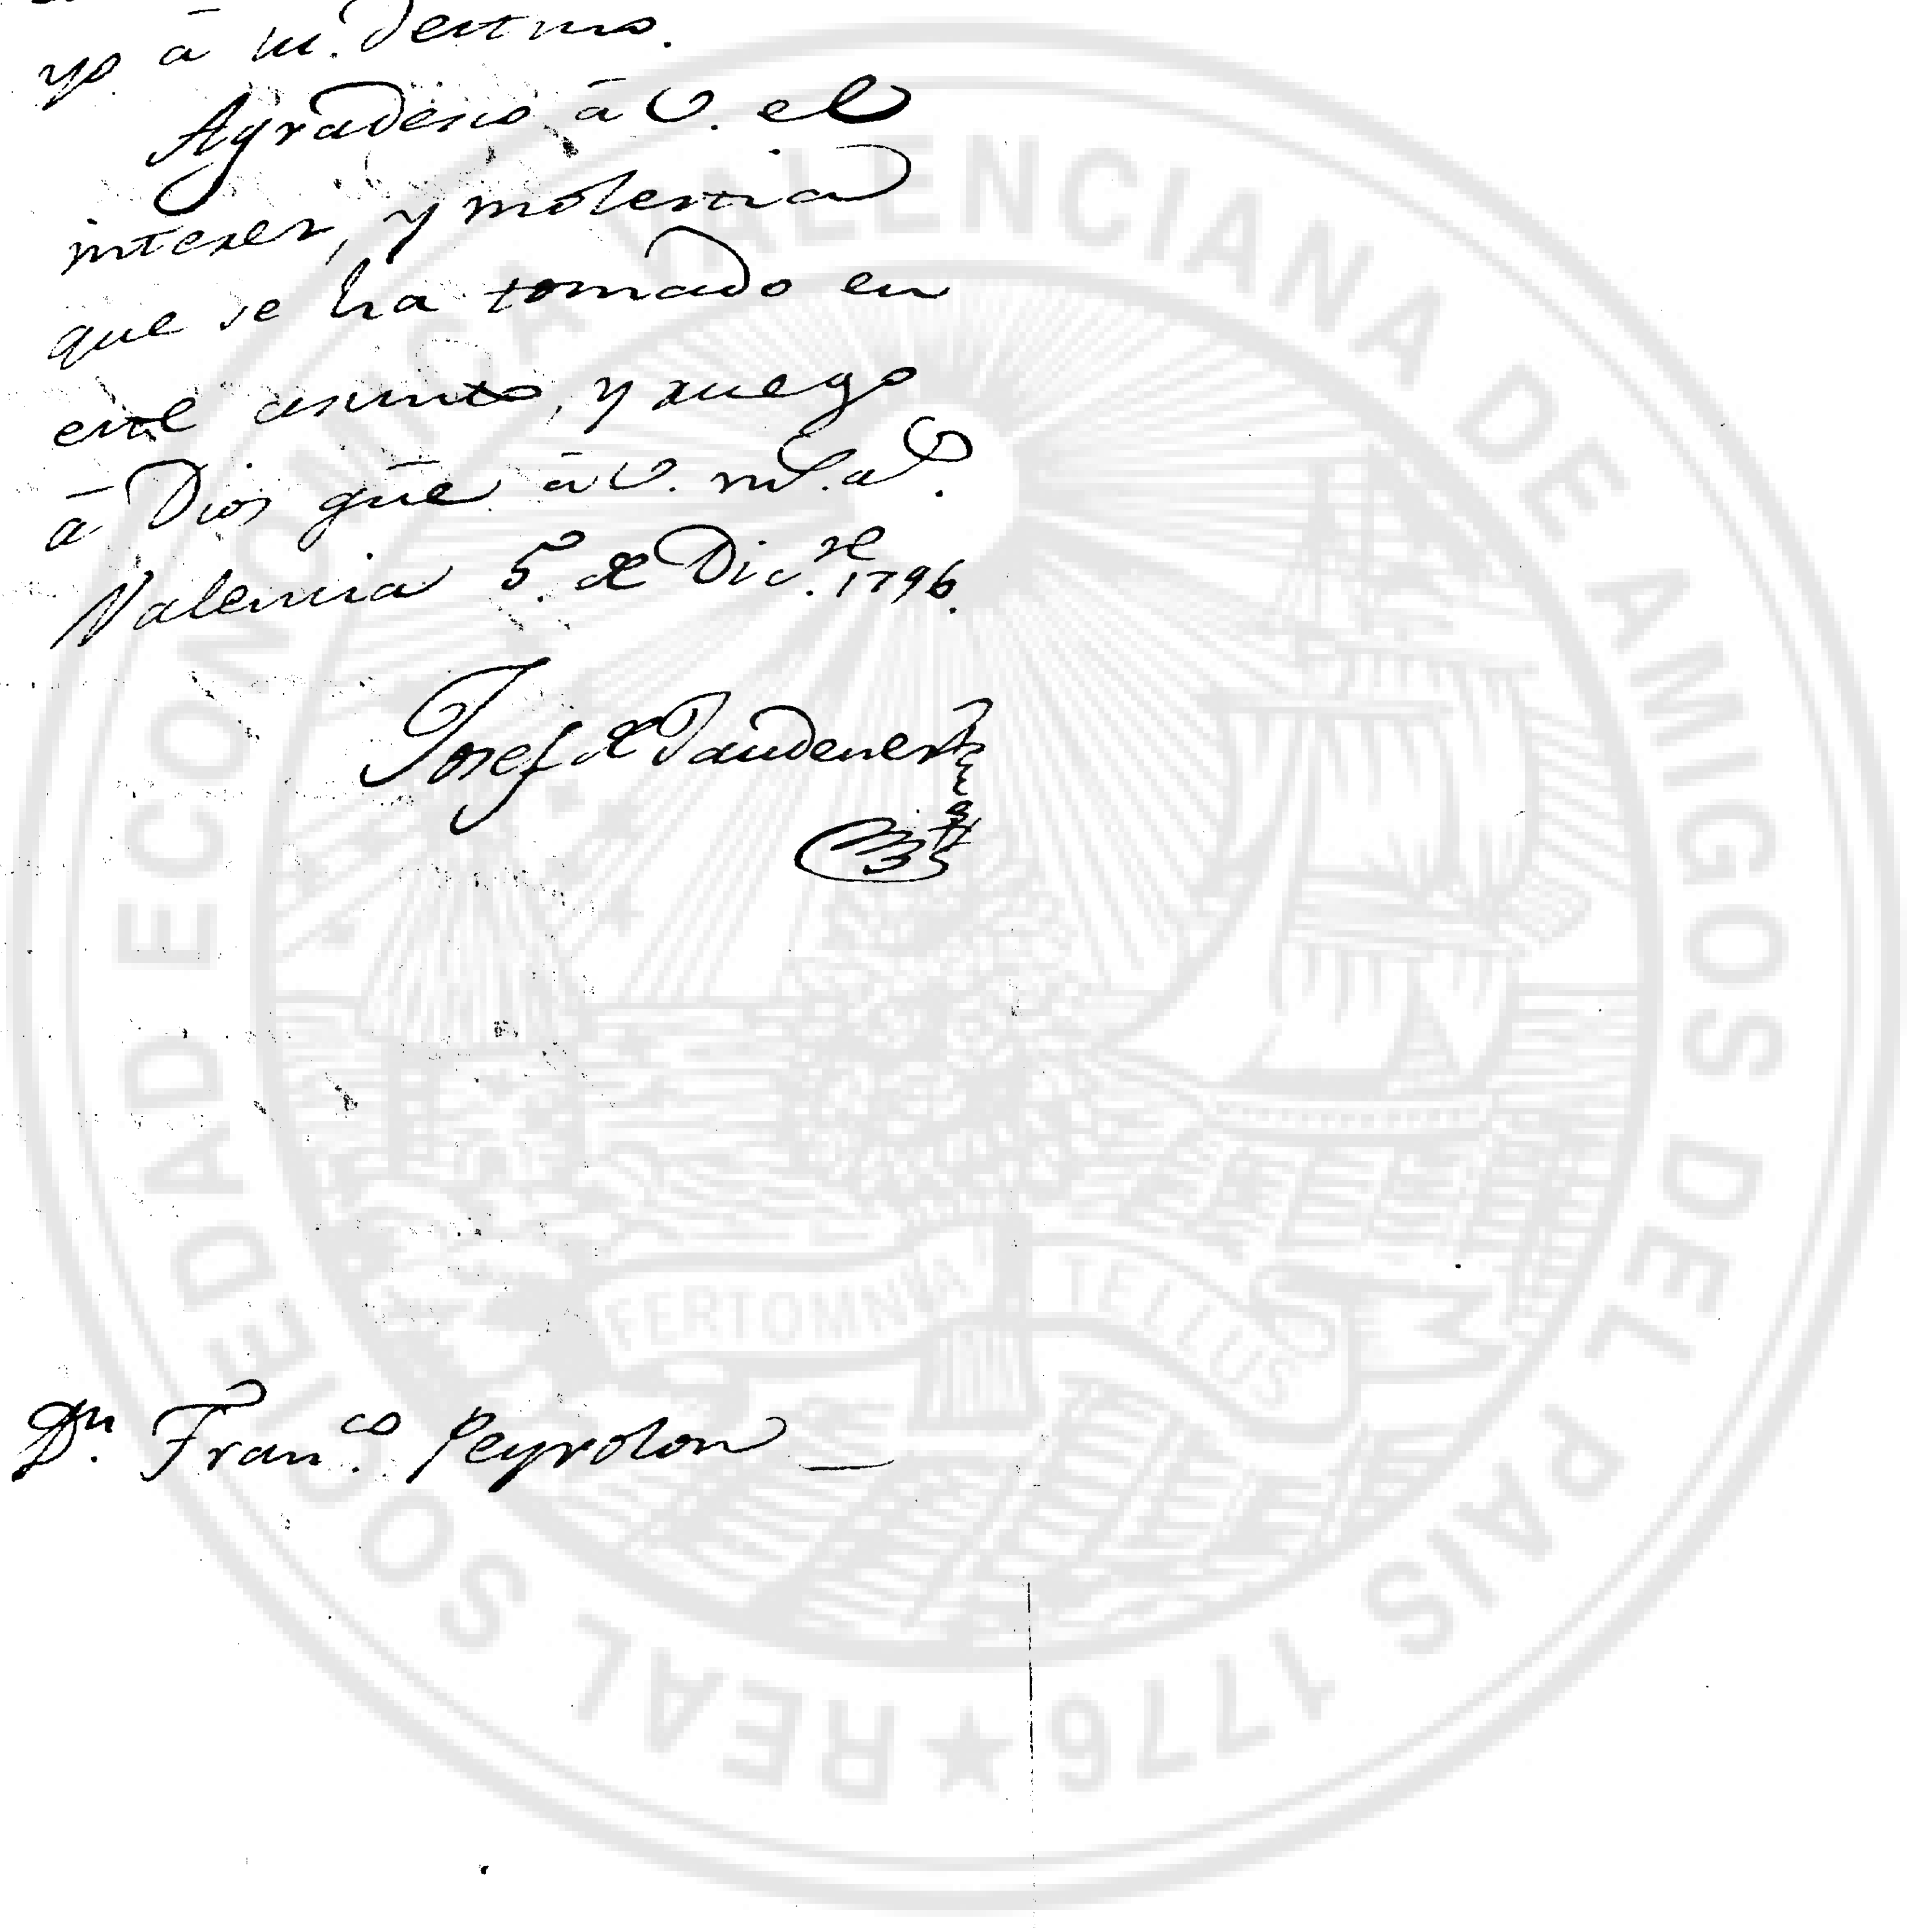 yo à su destino.
Agradesco à V. el
interes, y molestia
que se ha tomado en
este asunto, y ruego
à Dios güe à V. ms. as.
Valencia 5. de Dicre. 1796.
Josef de Jaudenes
Dn. Franco. Peyrolon
REAL SOCIEDAD ECONOMICA VALENCIANA DE AMIGOS DEL PAIS 1776
FERT OMNIA TELLUS